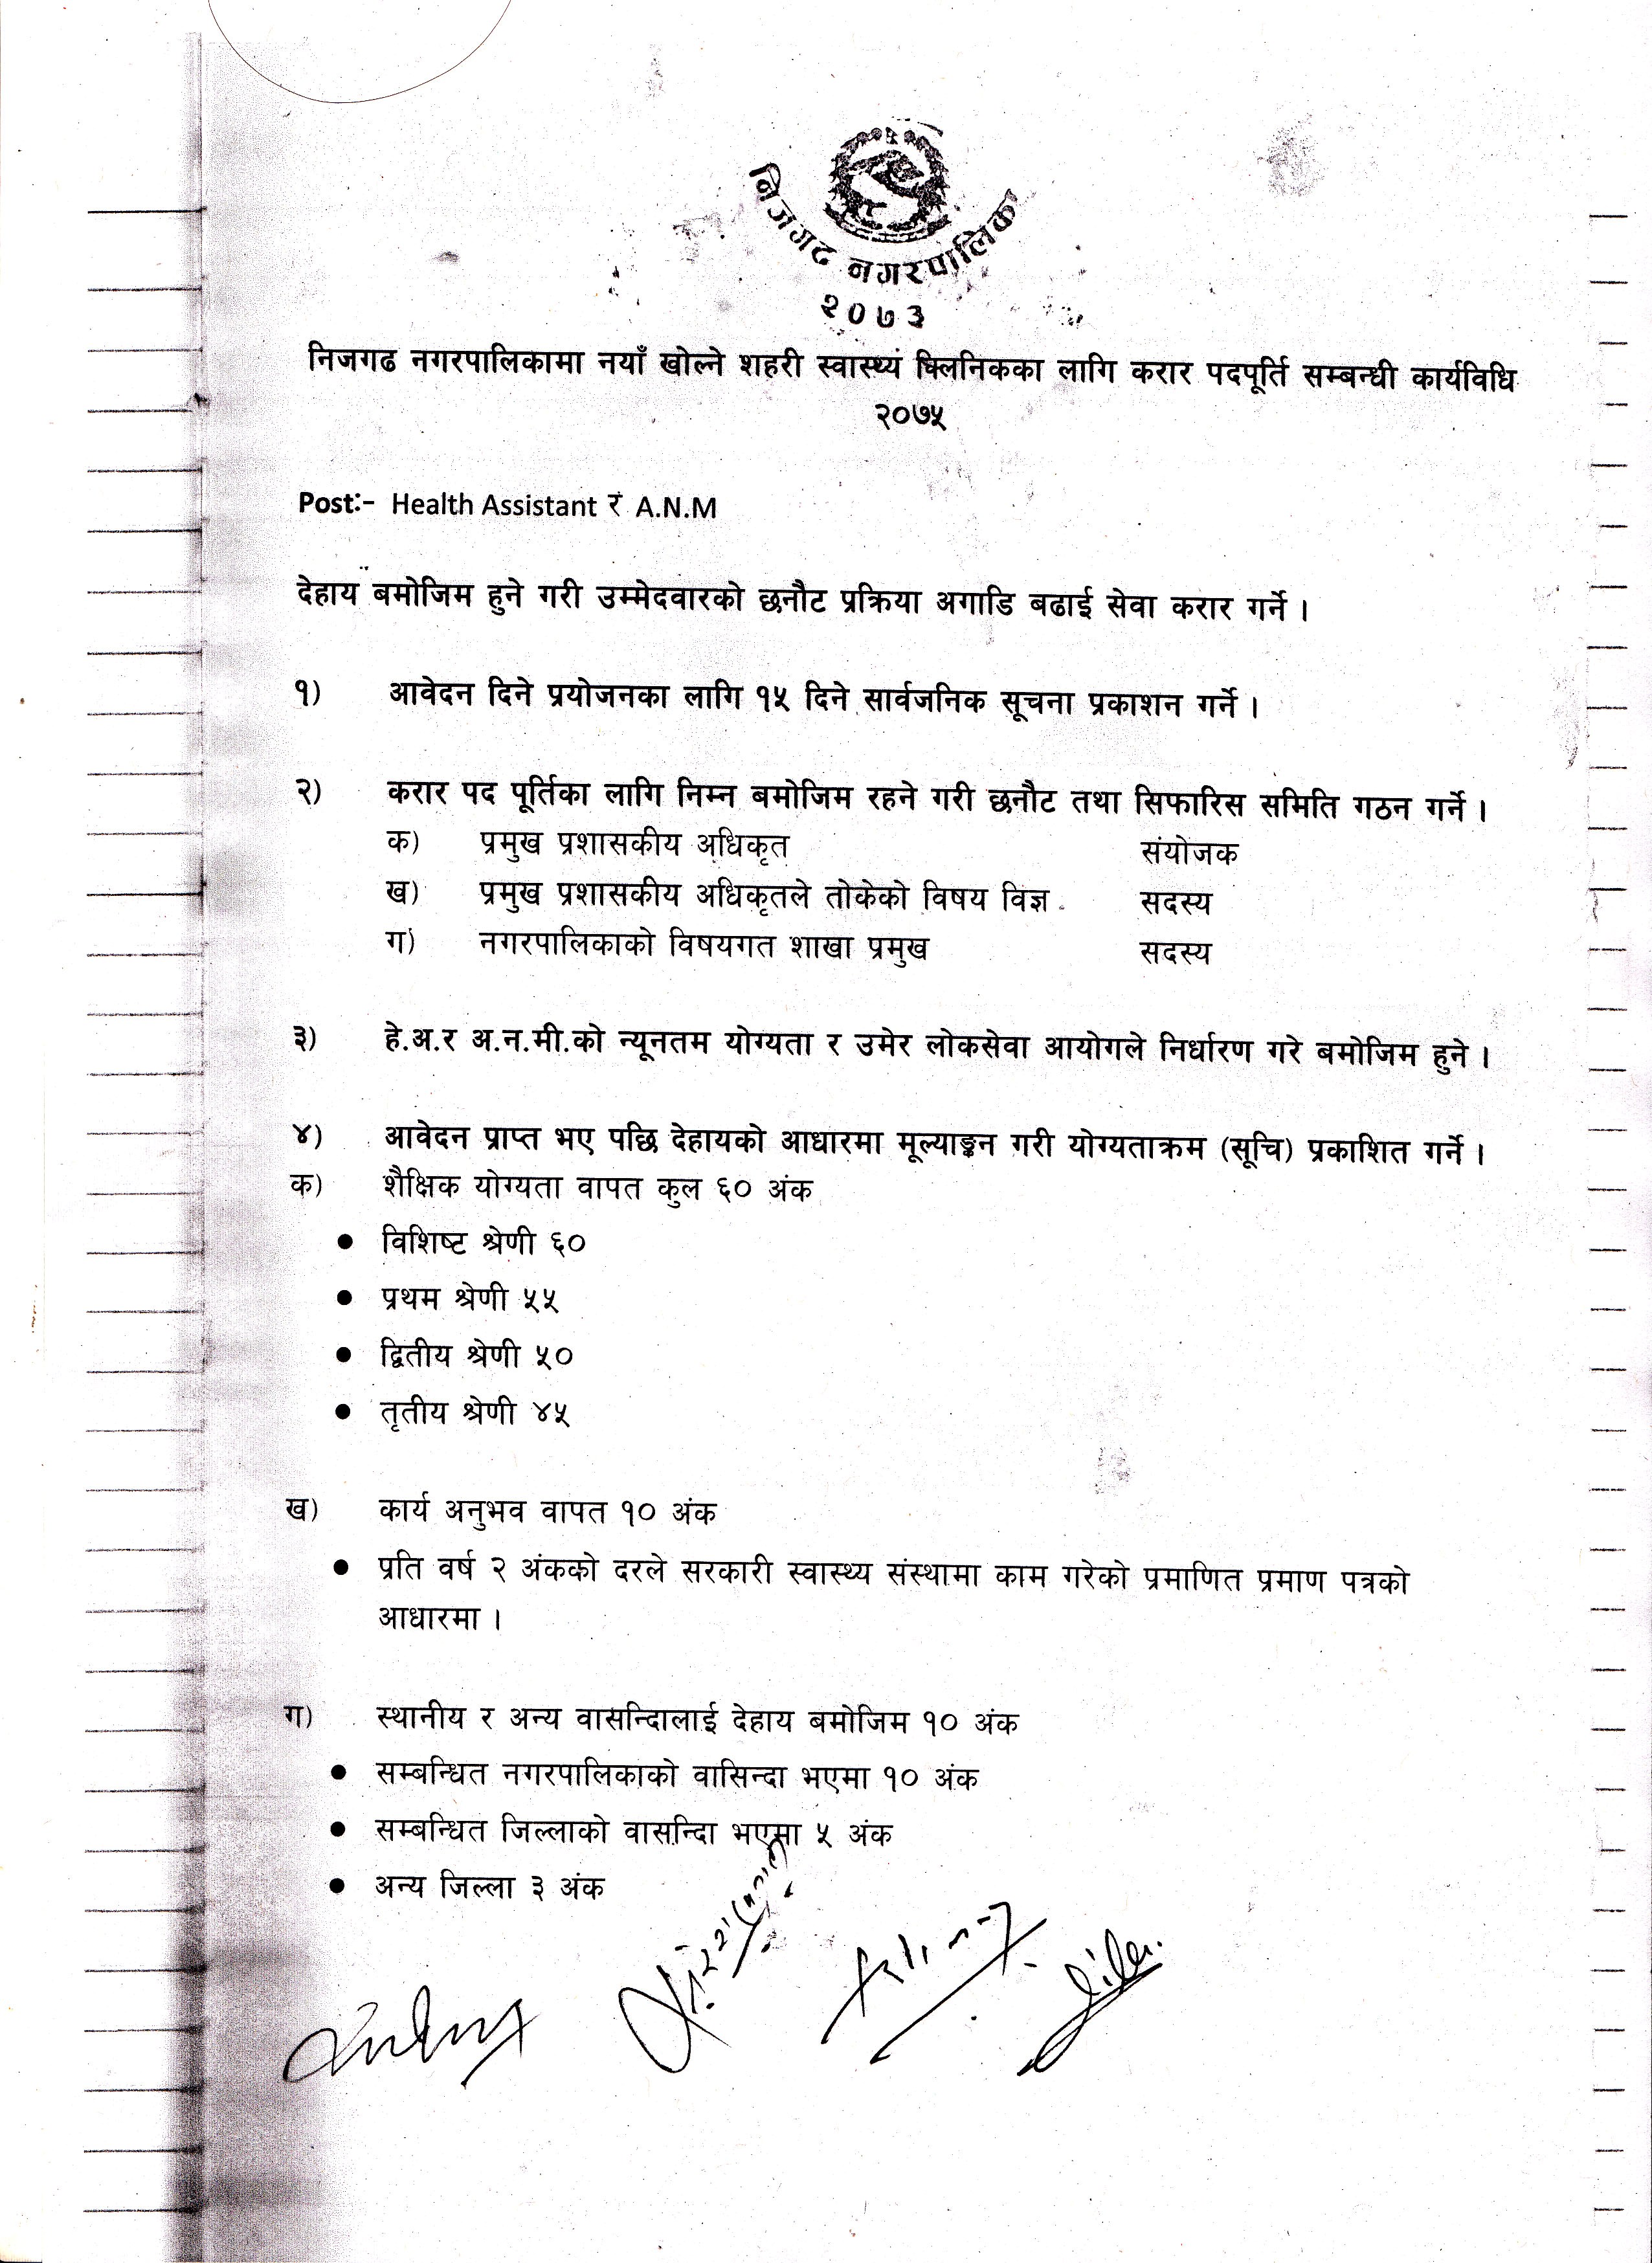 निजगढ नगरपालिका
२०७३
निजगढ नगरपालिकामा नयाँ खोल्ने शहरी स्वास्थ्य क्लिनिकका लागि करार पदपूर्ति सम्बन्धी कार्यविधि
२०७५
Post:- Health Assistant र A.N.M
देहाय बमोजिम हुने गरी उम्मेदवारको छनौट प्रक्रिया अगाडि बढाई सेवा करार गर्ने ।
१) आवेदन दिने प्रयोजनका लागि १५ दिने सार्वजनिक सूचना प्रकाशन गर्ने ।
२) करार पद पूर्तिका लागि निम्न बमोजिम रहने गरी छनौट तथा सिफारिस समिति गठन गर्ने ।
क) प्रमुख प्रशासकीय अधिकृत संयोजक
ख) प्रमुख प्रशासकीय अधिकृतले तोकेको विषय विज्ञ सदस्य
ग) नगरपालिकाको विषयगत शाखा प्रमुख सदस्य
३) हे.अ.र अ.न.मी.को न्यूनतम योग्यता र उमेर लोकसेवा आयोगले निर्धारण गरे बमोजिम हुने ।
४) आवेदन प्राप्त भए पछि देहायको आधारमा मूल्याङ्कन गरी योग्यताक्रम (सूचि) प्रकाशित गर्ने ।
क) शैक्षिक योग्यता वापत कुल ६० अंक
• विशिष्ट श्रेणी ६०
• प्रथम श्रेणी ५५
• द्वितीय श्रेणी ५०
• तृतीय श्रेणी ४५
ख) कार्य अनुभव वापत १० अंक
• प्रति वर्ष २ अंकको दरले सरकारी स्वास्थ्य संस्थामा काम गरेको प्रमाणित प्रमाण पत्रको
आधारमा ।
ग) स्थानीय र अन्य वासन्दिालाई देहाय बमोजिम १० अंक
• सम्बन्धित नगरपालिकाको वासिन्दा भएमा १० अंक
• सम्बन्धित जिल्लाको वासन्दिा भएमा ५ अंक
• अन्य जिल्ला ३ अंक